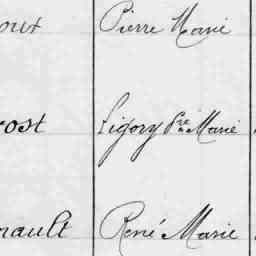 Pierre Marie
rost Ligory Pre Marie
nault René Marie